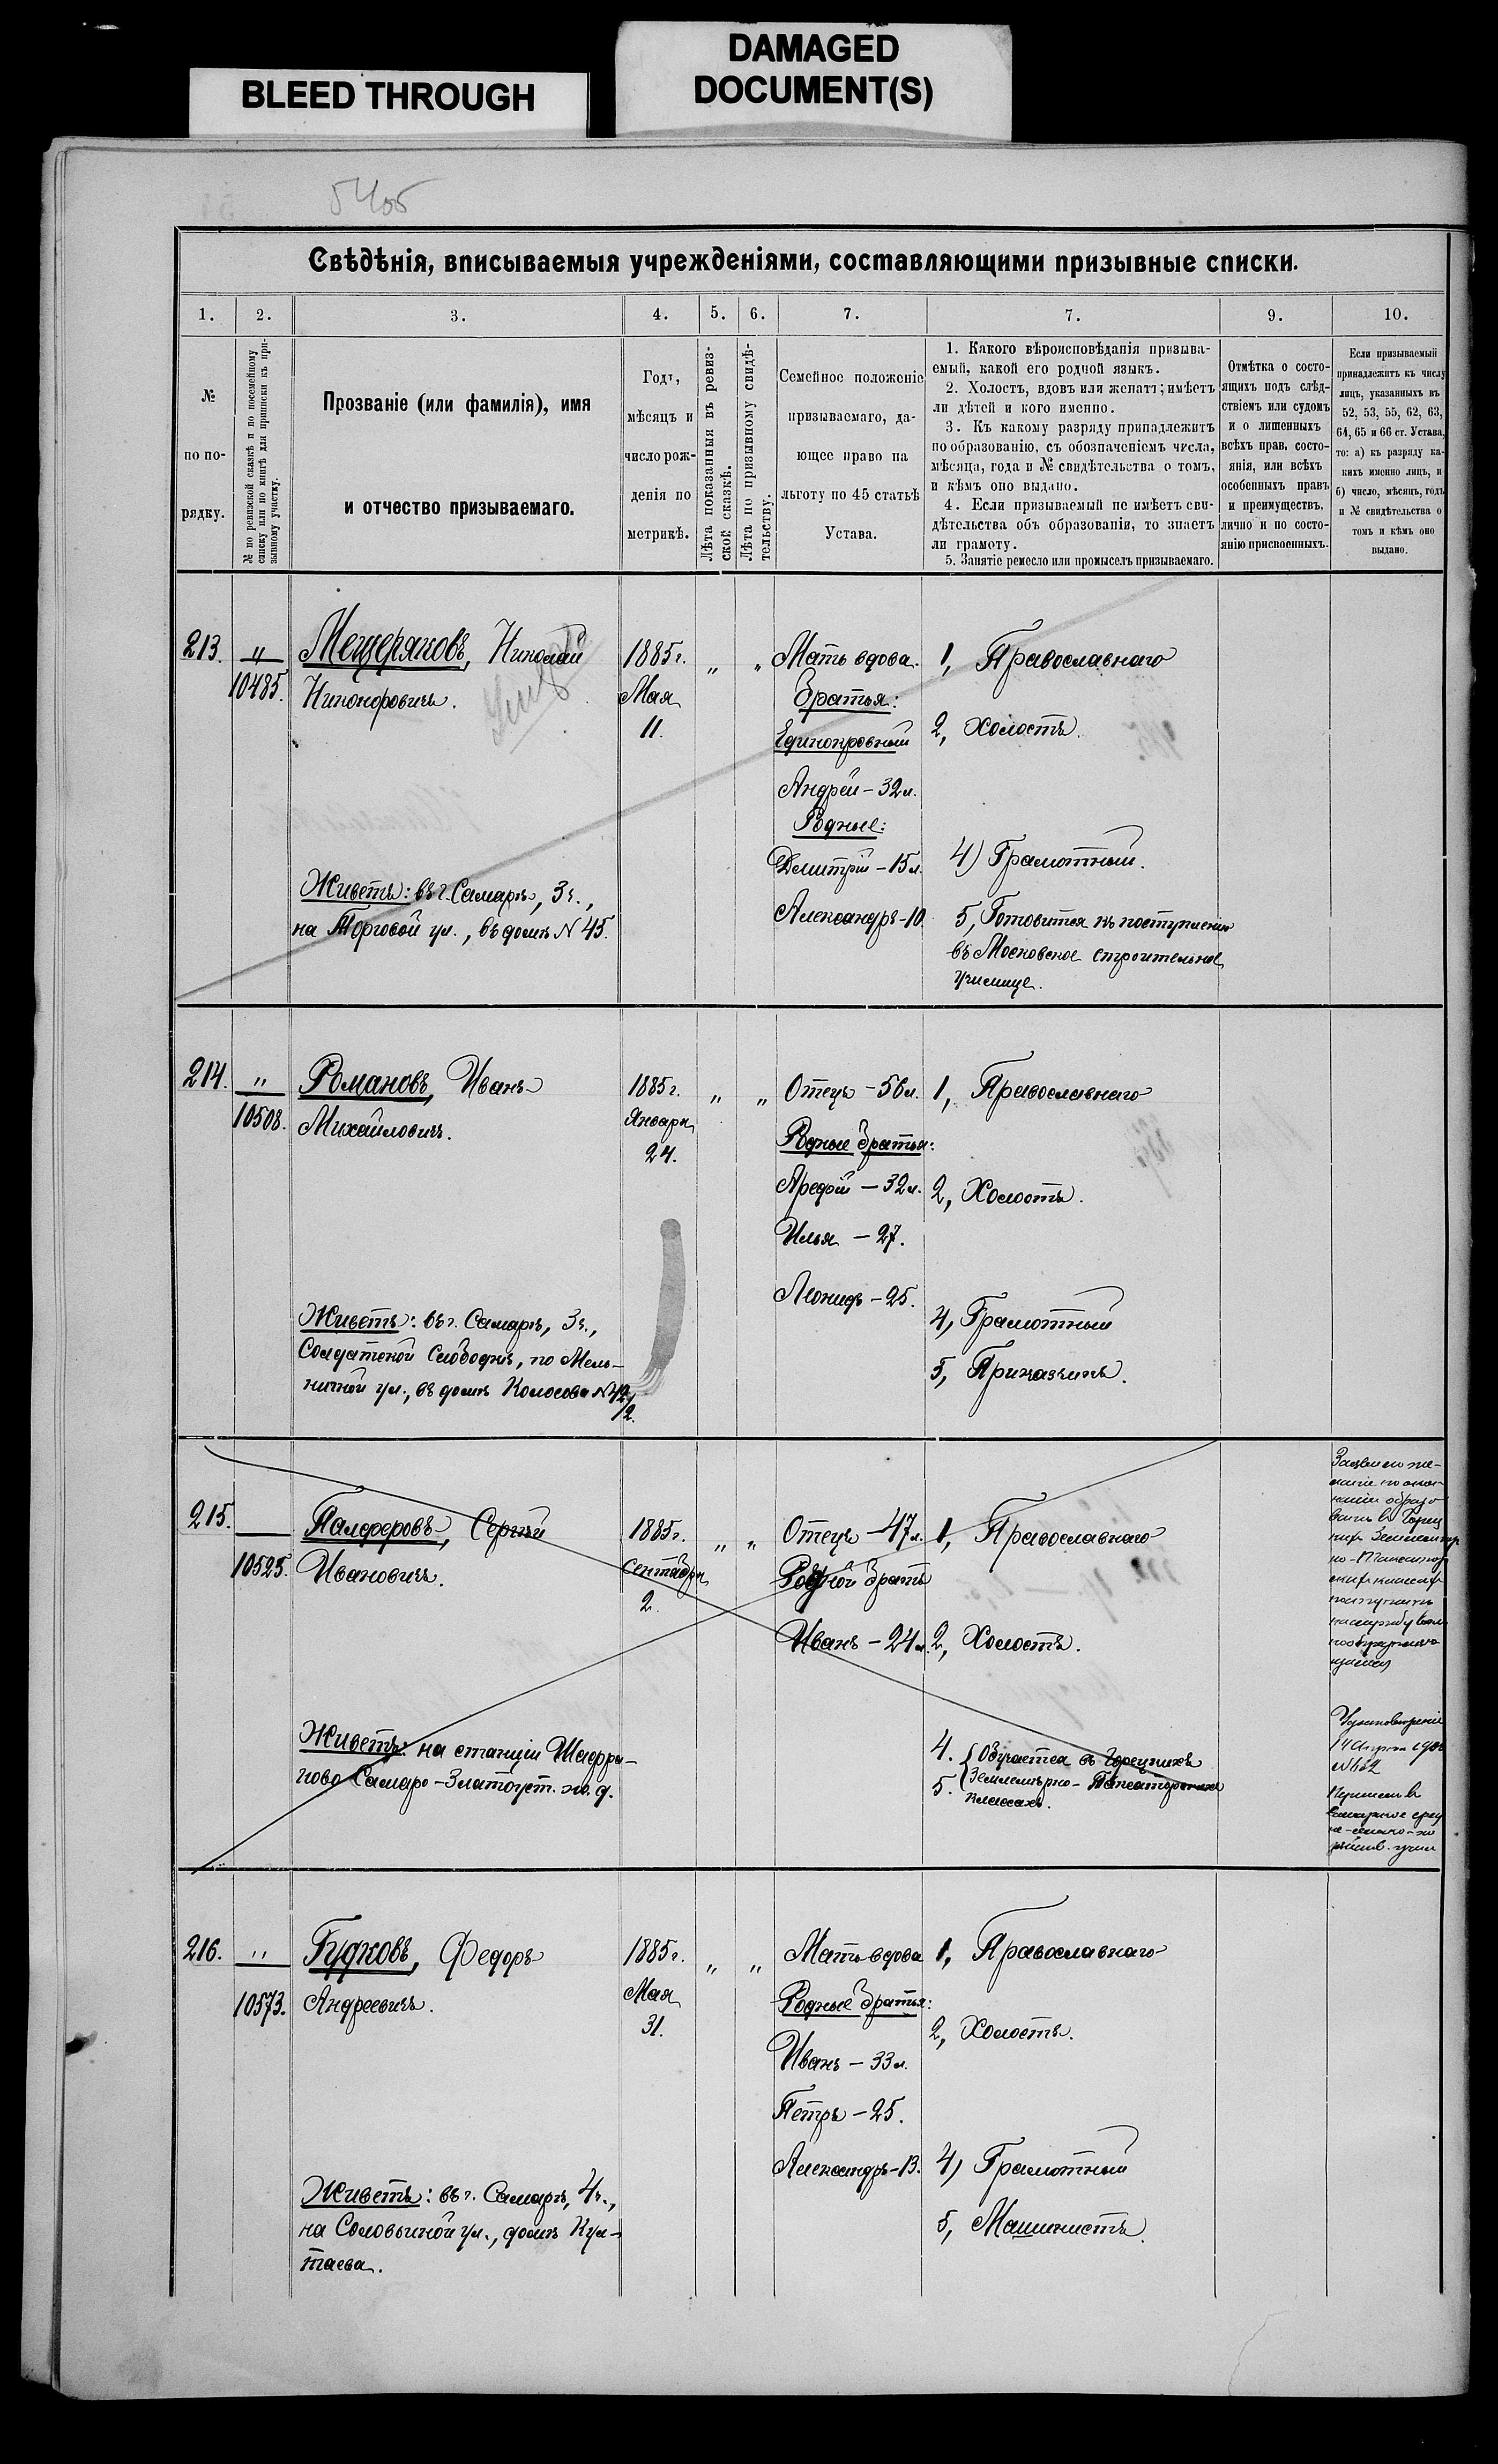 DAMAGED
DOCUMENT(S)
BLEED THROUGH
Свѣдѣнія, вписываемыя учрежденіями, составляющими призывные списки.
1. 2. 3. 4. 5. 6. 7. 7. 9. 10.
№
по по-
рядку.
№ по ревизской сказкѣ и по посемейному
списку или по книгѣ для приписки къ при-
зывному участку.
Прозваніе (или фамилія), имя
и отчество призываемаго.
Годъ,
мѣсяцъ и
число рож-
денія по
метрикѣ.
Лѣта показанныя въ ревиз-
ской сказкѣ.
Лѣта по призывному свидѣ-
тельству.
Семейное положеніе
призываемаго, да-
ющее право на
льготу по 45 статьѣ
Устава.
1. Какого вѣроисповѣданія призыва-
емый, какой его родной языкъ.
2. Холостъ, вдовъ или женатъ; имѣетъ
ли дѣтей и кого именно.
3. Къ какому разряду принадлежитъ
по образованію, съ обозначеніемъ числа,
мѣсяца, года и № свидѣтельства о томъ,
и кѣмъ оно выдано.
4. Если призываемый не имѣетъ сви-
дѣтельства объ образованіи, то знаетъ
ли грамоту.
5. Занятіе ремесло или промыселъ призываемаго.
Отмѣтка о состо-
ящихъ подъ слѣд-
ствіемъ или судомъ
и о лишенныхъ
всѣхъ прав, состо-
янія, или всѣхъ
особенныхъ правъ
и преимуществъ,
лично и по состо-
янію присвоенныхъ.
Если призываемый
принадлежитъ къ числу
лицъ, указанныхъ въ
52, 53, 55, 62, 63,
64, 65 и 66 ст. Устава,
то: а) къ разряду ка-
кихъ именно лицъ, и
б) число, мѣсяцъ, годъ
и № свидѣтельства о
томъ и кѣмъ оно
выдано.
213.
"
10485.
Мещеряковъ, Николай
Никоноровичъ.
Живетъ: въ г. Самарѣ, 3 ч.,
на Торговой ул., въ домѣ N 45.
1885 г.
Мая
11.
" "
Мать вдова.
Братья:
Единокровный
Андрей – 32 л.
Родные:
Дмитрій – 15 л.
Александръ – 10.
1, Православнаго
2, Холостъ.
4) Грамотный.
5, Готовится къ поступленію
въ Московское строительное
училище.
214.
"
10508.
Романовъ, Иванъ
Михайловичъ.
Живетъ: въ г. Самарѣ, 3 ч.,
Солдатской Слободкѣ, по Мель-
ничной ул., въ домѣ Колосова N 42/2.
1885 г.
Января
24.
" "
Отецъ – 56 л.
Родные братья:
Арефій – 32 л.
Илья – 27.
Леонидъ – 25.
1, Православнаго
2, Холостъ.
4, Грамотный
5, Приказчикъ.
215.
10525.
Палферовъ, Сергѣй
Ивановичъ.
Живетъ: на станціи Шафра-
ново Самаро-Златоуст. ж. д.
1885 г.
Сентября
2.
" "
Отецъ – 47 л.
Родной братъ
Иванъ – 24 л.
1, Православнаго
2, Холостъ.
4.
5.
Обучается въ Горецкихъ
Землемѣрно-Таксаторскихъ
классахъ.
216.
"
10573.
Гудковъ, Федоръ
Андреевичъ.
Живетъ: въ г. Самарѣ, 4 ч.,
на Соловьиной ул., домъ Кул-
таева.
1885 г.
Мая
31.
" "
Мать вдова
Родные братья:
Иванъ – 33 л.
Петръ – 25.
Александръ – 13.
1, Православнаго
2, Холостъ.
4) Грамотный
5, Машинистъ.